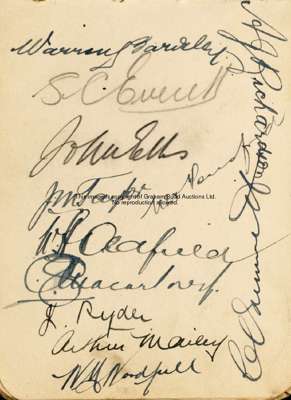 Warren Bardsley.
S. C. Everett
John Ellis
J M Taylor
W A Oldfield
C G Macartney.
J. Ryder
Arthur Mailey
W M Woodfull
A J Richardson
The image is copyright of Graham Budd Auctions Ltd.
No reproduction allowed.